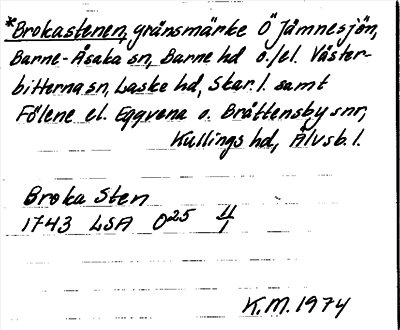 *Brokastenen, gränsmärke Ö Jämnesjön,
Barne-Åsaka sn, Barne hd o./el. Väster-
bitterna sn, Laske hd, Skar. l. samt
Fölene el. Eggvena o. Bråttensby snr,
Kullings hd, Älvsb. l.
Broka Sten
1743 LSA O25 4/1
K.M. 1974